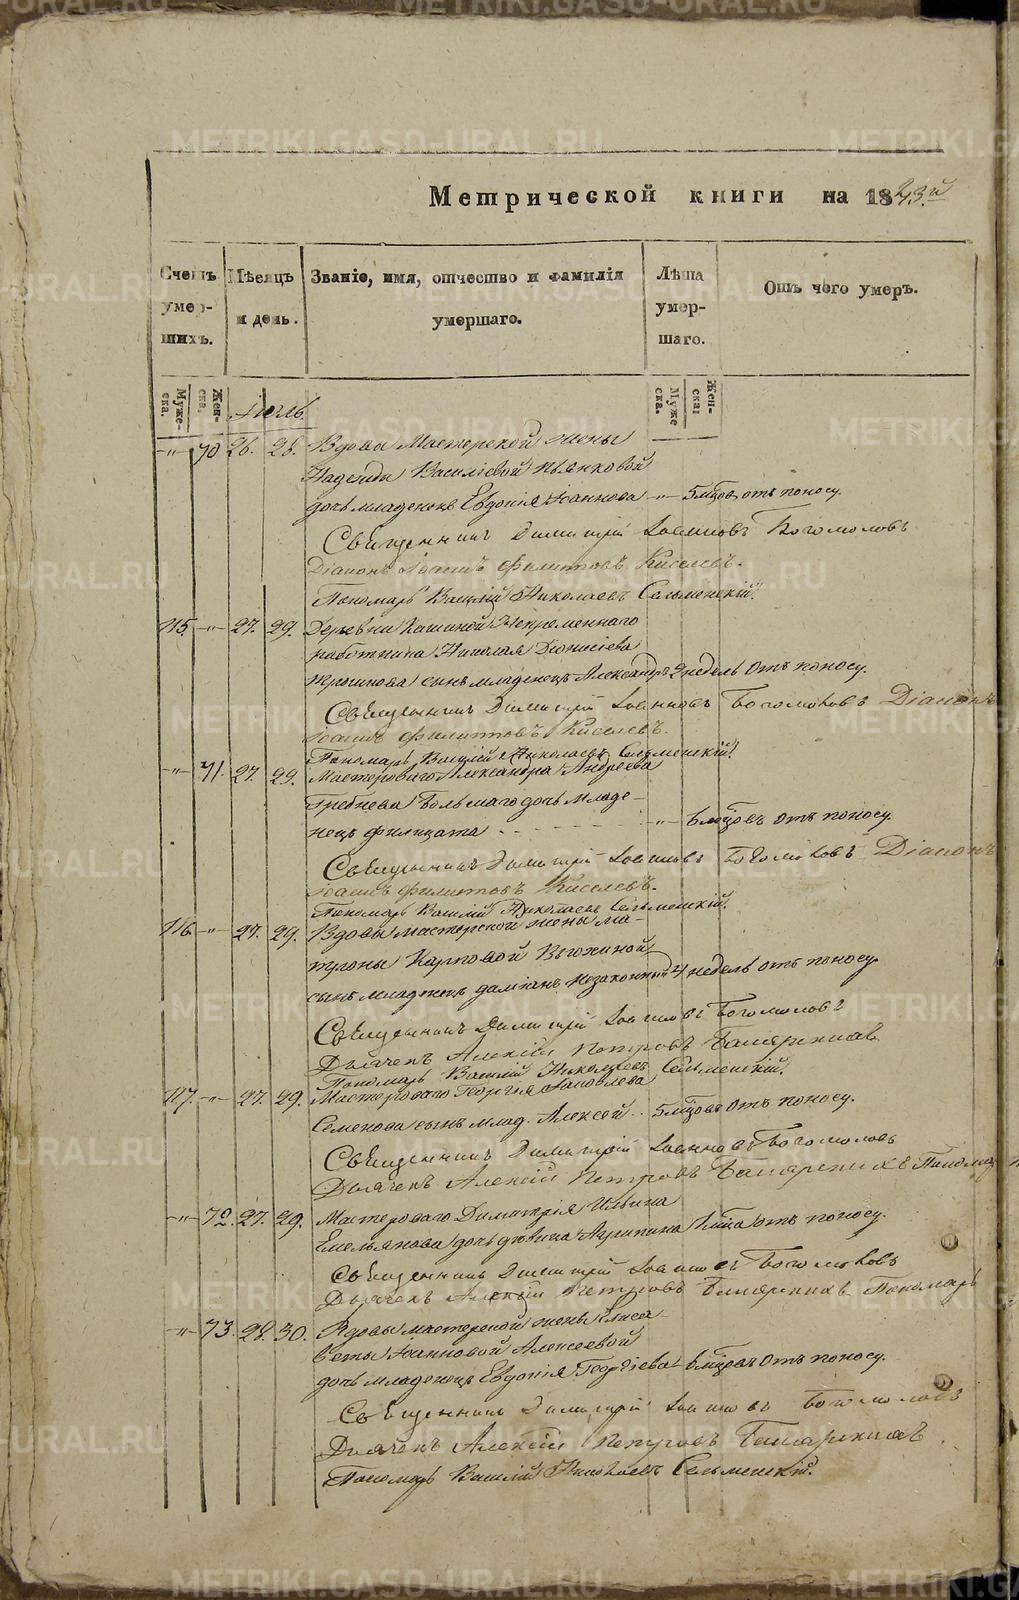 Метрической книги на 1843.й
Счетъ умер- шихъ.
Мѣсяцъ и день.
Званіе, имя, отчество и фамилія умершаго.
Лѣта умер- шаго.
Отъ чего умеръ.
Муже ска. Жен- ска.
Муже ска. Жен- ска.
Іюль
-"- 70 26. 28. Вдовы Мастерской жены
Надежды Василіевой Пьянковой
дочь младенецъ Евдокія Іоаннова -"- 5 мцовъ отъ поносу.
Священникъ Димитрій Іоанновъ Богомоловъ
Діаконъ Іоаннъ Филиповъ Киселевъ.
Пономарь Василій Николаевъ Сельменскій.
115. -"- 27. 29. Деревни Кашиной Непременнаго
работника Николая Діонисіева
сынъ младенецъ Александръ 2 недель отъ поносу.
Священникъ Димитрій Іоанновъ Богомоловъ Діаконъ
Іоаннъ Филиповъ Киселевъ.
Пономарь Василій Николаевъ Сельменскій.
-"- 71. 27. 29. Мастероваго Александра Андреева
Гребнева Большаго дочь младе-
нецъ Филицата -"- 6 мцовъ отъ поносу.
Священникъ Димитрій Іоанновъ Богомоловъ Діаконъ
Іоаннъ Филиповъ Киселевъ.
Пономарь Василій Николаевъ Сельменскій.
116. -"- 27. 29. Вдовы мастерской жены Ма-
троны Карповой
сынъ младенецъ Даміанъ незаконный 4 недель отъ поносу.
Священникъ Димитрій Іоанновъ Богомоловъ
Дьячекъ Алексій Петровъ
Пономарь Василій Николаевъ Сельменскій.
117. -"- 27. 29. Мастероваго Георгія Яковлева
Семенова сынъ млад. Алексей 5 мцовъ отъ поносу.
Священникъ Димитрій Іоанновъ Богомоловъ
Дьячекъ Алексій Петровъ Пономарь
-"- 72. 27. 29. Мастероваго Димитрія Ильина
Емельянова дочь девица Агрипина 1 отъ поносу.
Священникъ Димитрій Іоанновъ Богомоловъ
Дьячекъ Алексій Петровъ Пономарь
-"- 73. 28. 30. Вдовы мастерской жены Елиса-
веты Іоанновой Алексеевой
дочь младенецъ Евдокія Георгіева 6 мцовъ отъ поносу.
Священникъ Димитрій Іоанновъ Богомоловъ
Дьячекъ Алексій Петровъ
Пономарь Василій Николаевъ Сельменскій.
METRIKI.GASO-URAL.RU